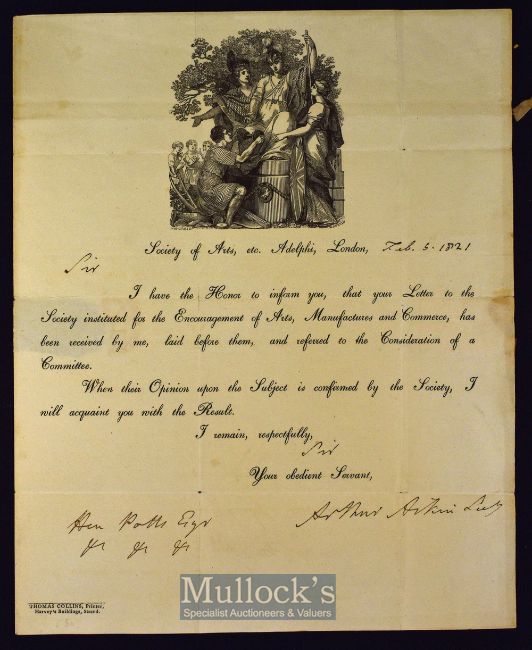 Society of Arts, etc. Adelphi, London, Feb. 5. 1821
Sir
I have the Honor to inform you, that your Letter to the
Society instituted for the Encouragement of Arts, Manufactures and Commerce, has
been received by me, laid before them, and referred to the Consideration of a
Committee.
When their Opinion upon the Subject is confirmed by the Society, I
will acquaint you with the Result.
I remain, respectfully,
Sir
Your obedient Servant,
Arthur Aikin Secy
Hen Potts Esqr
&c &c &c
THOMAS COLLINS, Printer,
Harvey's Buildings, Strand.
Mullock's
Specialist Auctioneers & Valuers